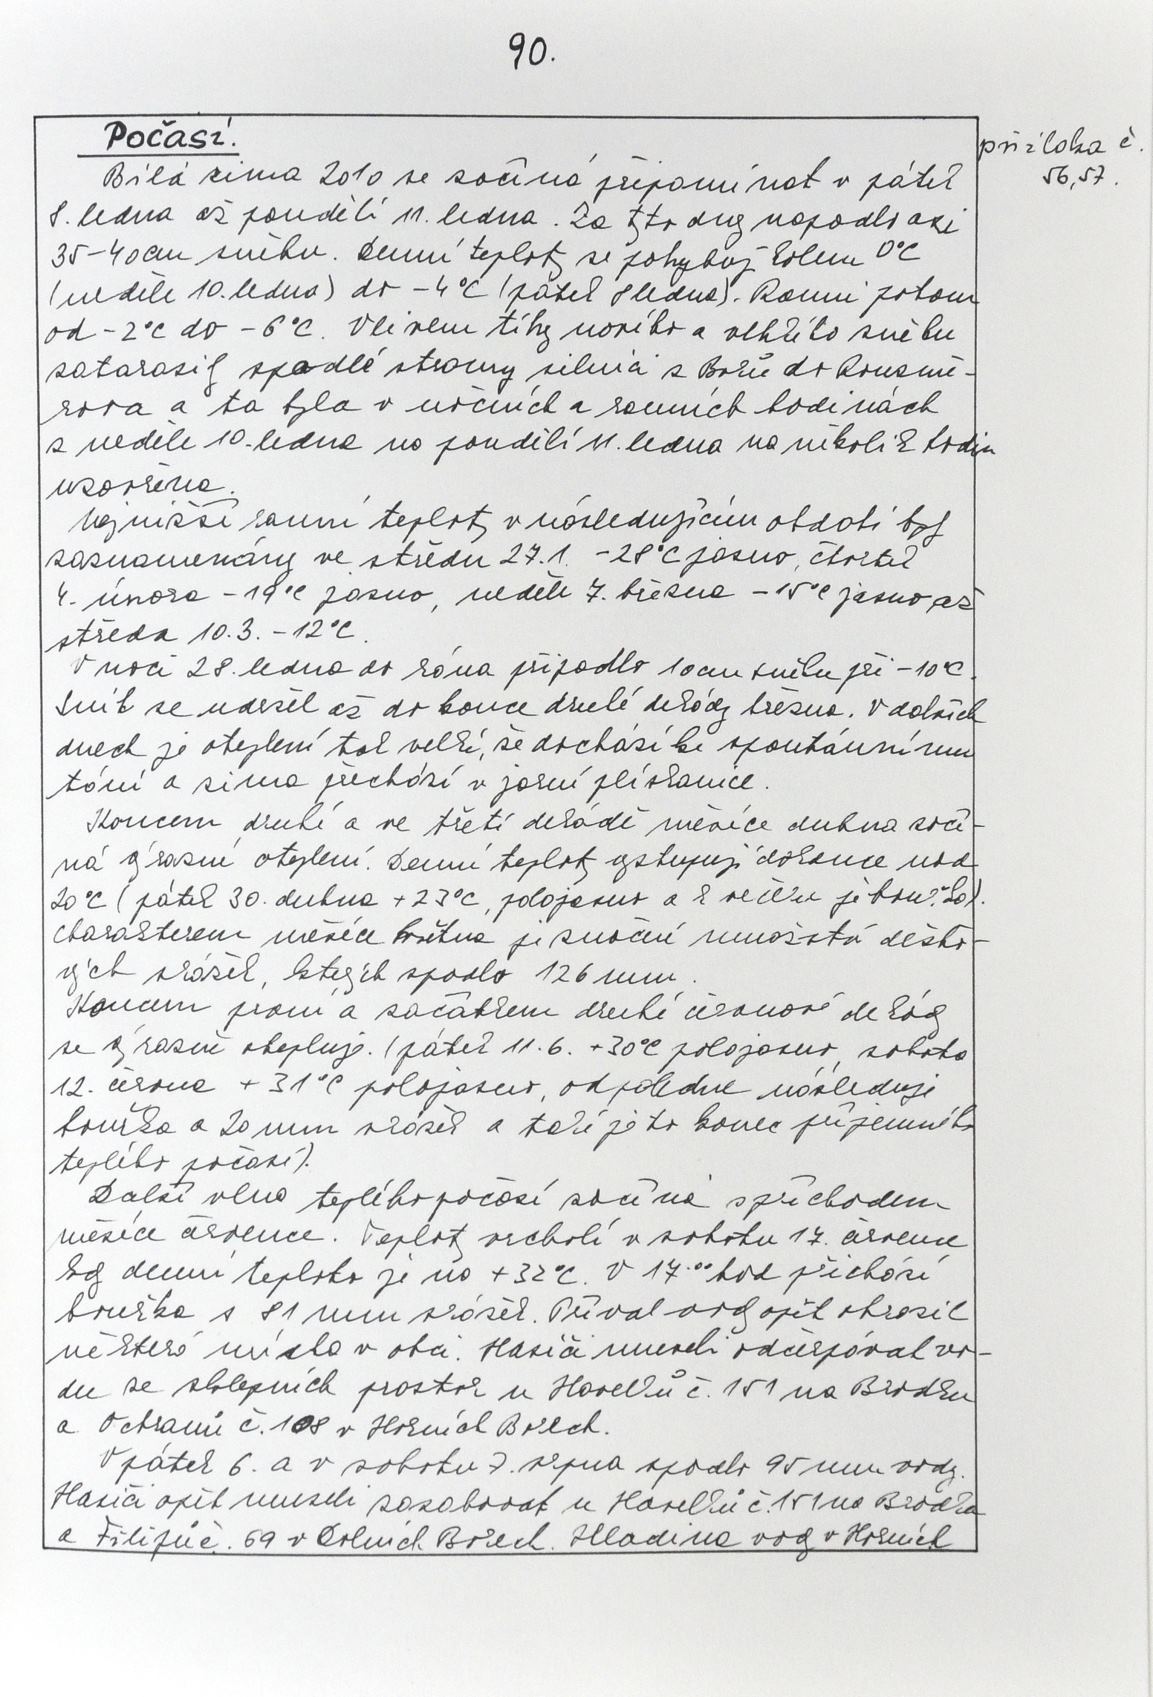 90.
Počasí.
příloha č.
56,57.
Bílá zima 2010 se začíná připomínat v pátek
8. ledna až pondělí 11. ledna. Za tyto dny napadlo asi
35-40cm sněhu. Denní teploty se pohybují kolem 0°C
(neděle 10. ledna) do -4°C (pátek 8 ledna). Ranní potom
od -2°C do -6°C. Vlivem tíhy nového a vlhkého sněhu
zatarasily spadlé stromy silnici z Borů do Kousmě-
rova a ta byla v nočních a ranních hodinách
z neděle 10. ledna na pondělí 11. ledna na několik hodin
uzavřena.
Nejnižší ranní teploty v následujícím období byly
zaznamenány ve středu 27.1. -28°C jasno, čtvrtek
4. února -19°C jasno, neděle 7. března -15°C jasno až
středa 10.3. -12°C.
V noci 28. ledna do rána připadlo 10cm sněhu při -10°C.
Sníh se udržel až do konce druhé dekády března. V dalších
dnech je oteplení tak velké, že dochází ke spontánnímu
tání a zima přechází v jarní plískanice.
Koncem druhé a ve třetí dekádě měsíce dubna začí-
ná výrazné oteplení. Denní teploty vystupují dokonce nad
20°C (pátek 30. dubna +23°C, polojasno a k večeru je bouřka).
Charakterem měsíce května je značné množství dešťo-
vých srážek, kterých spadlo 126 mm.
Koncem první a začátkem druhé červnové dekády
se výrazně otepluje. (pátek 11.6. +30°C polojasno, sobota
12. června +31°C polojasno, odpoledne následuje
bouřka a 20mm srážek a také je to konec příjemného
teplého počasí).
Další vlna teplého počasí začíná s příchodem
měsíce července. Teploty vrcholí v sobotu 17. července
kdy denní teplota je na +32°C. V 17.00 hod přichází
bouřka s 81 mm srážek. Příval vody opět ohrozil
některá místa v obci. Hasiči museli odčerpávat vo-
du ze sklepních prostor u Havelků č. 151 na Brodku
a Ochranů č. 108 v Horních Borech.
V pátek 6. a v sobotu 7. srpna spadlo 95 mm vody.
Hasiči opět museli zasahovat u Havelků č. 151 na Brodku
a Filipů č. 69 v Dolních Borech. Hladina vody v Horních